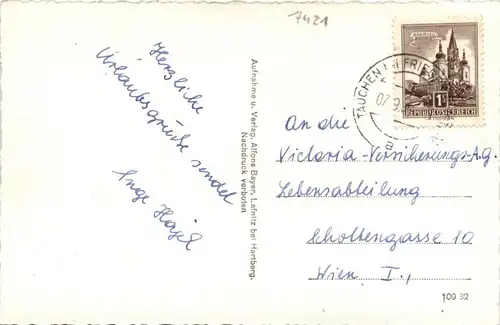 7421
Herzliche
Urlaubsgrüße sendet
Inge
Aufnahme u. Verlag: Alfons Bayer, Lafnitz bei Hartberg.
Nachdruck verboten
TAUCHEN
07.9.
1S
REPUBLIK ÖSTERREICH
An die
Victoria-Versicherungs-A.G.
Lebensabteilung
Schottengasse 10
Wien I.,
109 92